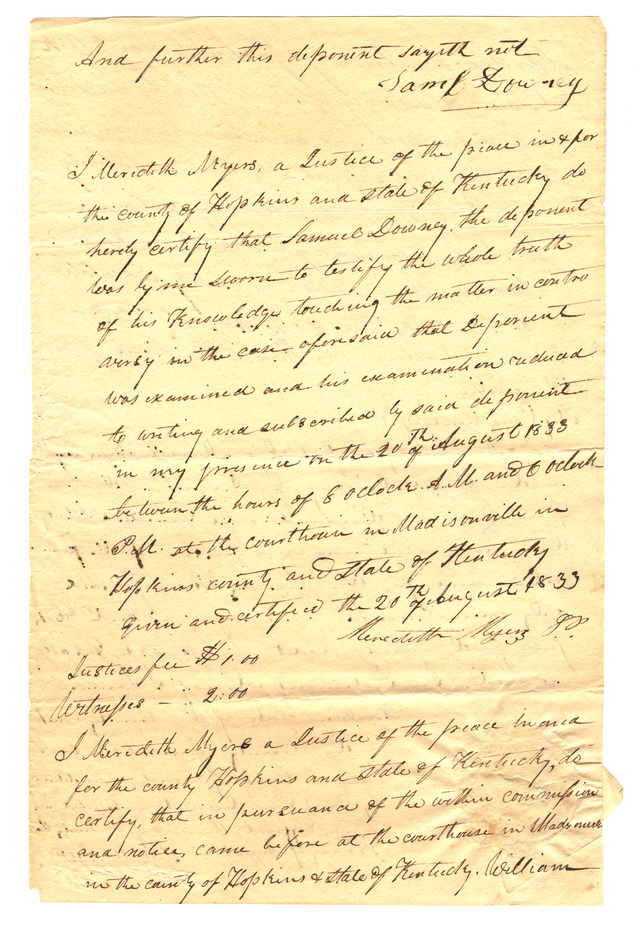 And further this deponent sayith not
Saml Downey
I Meredith Myers, a Justice of the peace in & for
the county of Hopkins and state of Kentucky do
herely certify that Samuel Downey, the deponent
was by me sworn to testify the whole truth
of his Knowledge touching the matter in contro
versy in the case aforesaid that Deponent
was examined and his examination reduced
to writing and subscribed by said deponent
in my presence on the 20th of August 1833
between the hours of 8 oclock A.M. and 6 oclock
P.M. at the courthouse in Madisonville in
Hopkins county and State of Kentucky
given and certified the 20th of August 1833
Meredith Myers J.P.
Justices fee $1.00
Witnesses - 2.00
I Meredith Myers a Justice of the peace in and
for the county Hopkins and state of Kentucky, do
certify, that in pursuance of the within commission
and notice, came before at the courthouse in
in the county of Hopkins & state of Kentucky. William